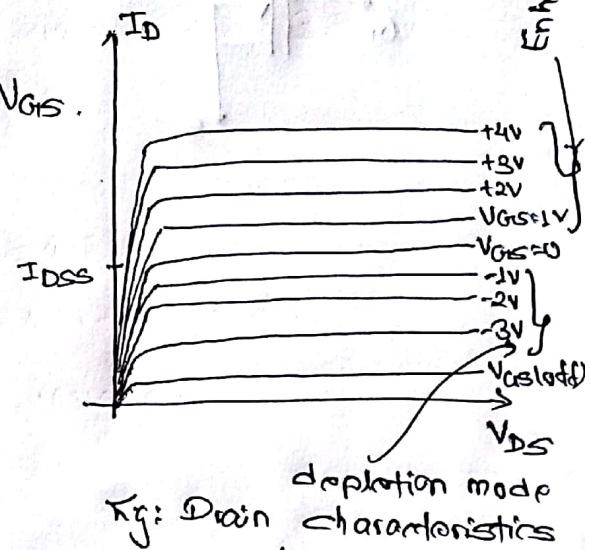 I_D
Enh
V_GS.
+4V
+3V
+2V
V_GS=1V
V_GS=0
I_DSS
-1V
-2V
-3V
V_GS(off)
V_DS
depletion mode
Fig: Drain characteristics